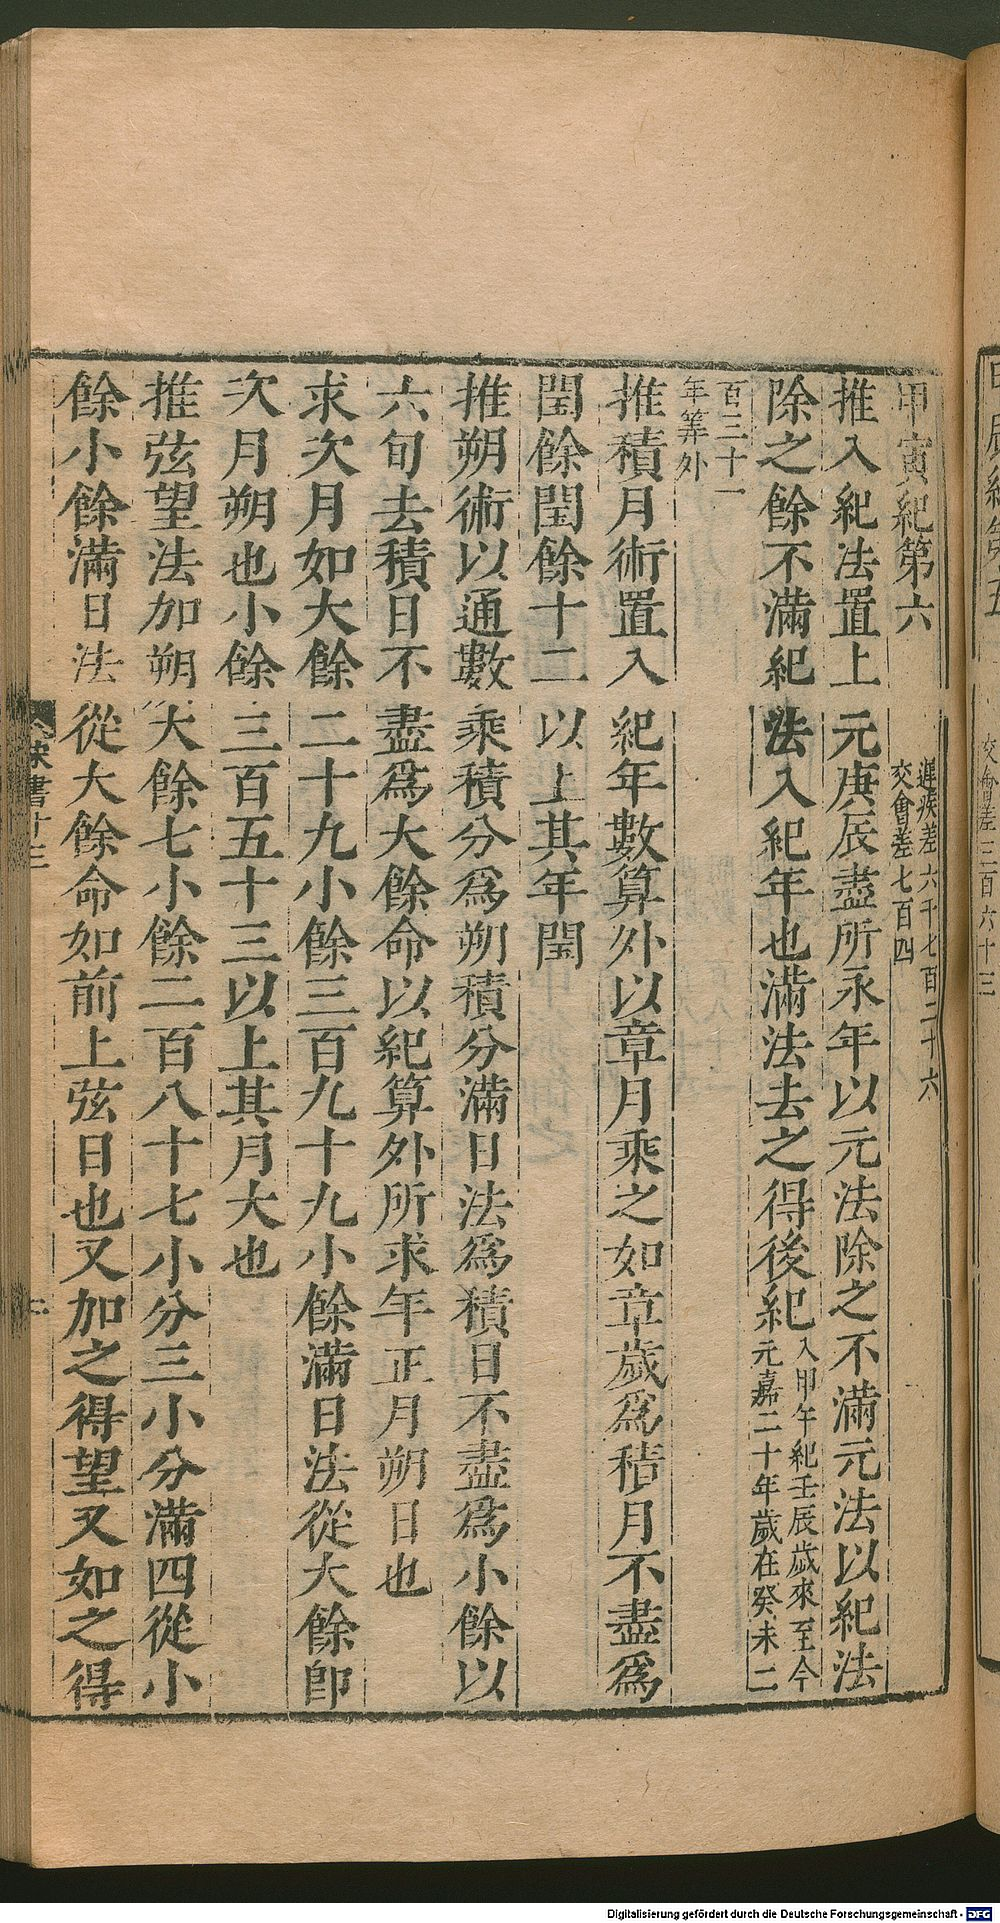 甲寅紀第六 遲疾差六千七百二十六
交會差七百四
推入紀法置上元庚辰盡所求年以元法除之不滿元法以紀法
除之餘不滿紀法入紀年也滿法去之得後紀 入甲午紀壬辰歲來至今
元嘉二十年歲在癸未二
百三十一
年筭外
推積月術置入紀年數算外以章月乘之如章歲爲積月不盡爲
閏餘閏餘十二以上其年閏
推朔術以通數乘積分爲朔積分滿日法爲積日不盡爲小餘以
六旬去積日不盡爲大餘命以紀算外所求年正月朔日也
求次月如大餘二十九小餘三百九十九小餘滿日法從大餘卽
次月朔也小餘三百五十三以上其月大也
推弦望法加朔大餘七小餘二百八十七小分三小分滿四從小
餘小餘滿日法從大餘命如前上弦日也又加之得望又如之得
書十三
二
交會差三百六十三
Digitalisierung gefördert durch die Deutsche Forschungsgemeinschaft - DFG